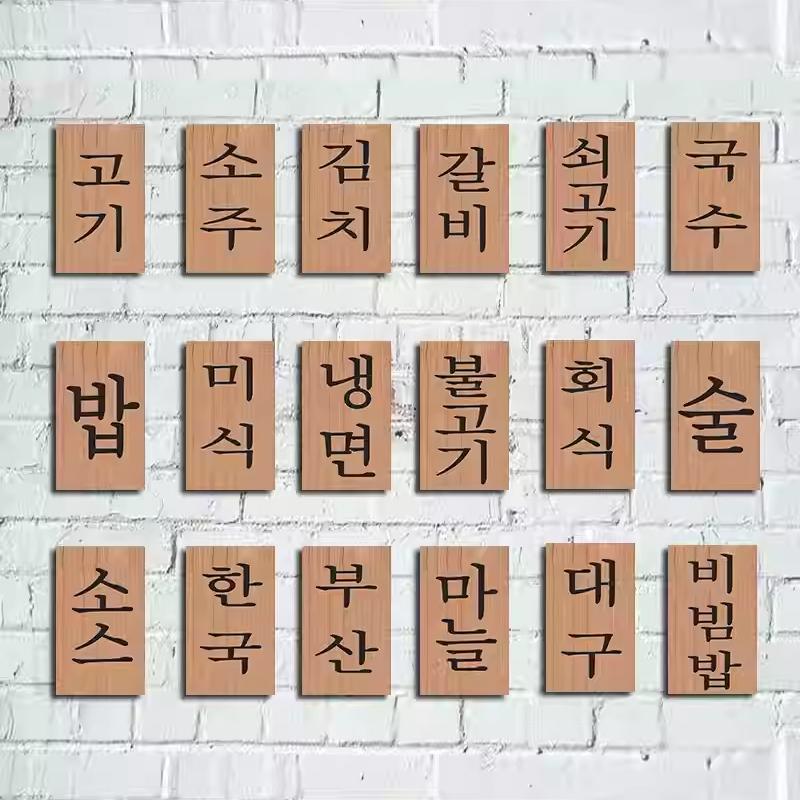 고기
소주
김치
갈비
쇠고기
국수
밥
미식
냉면
불고기
회식
술
소스
한국
부산
마늘
대구
비빔밥